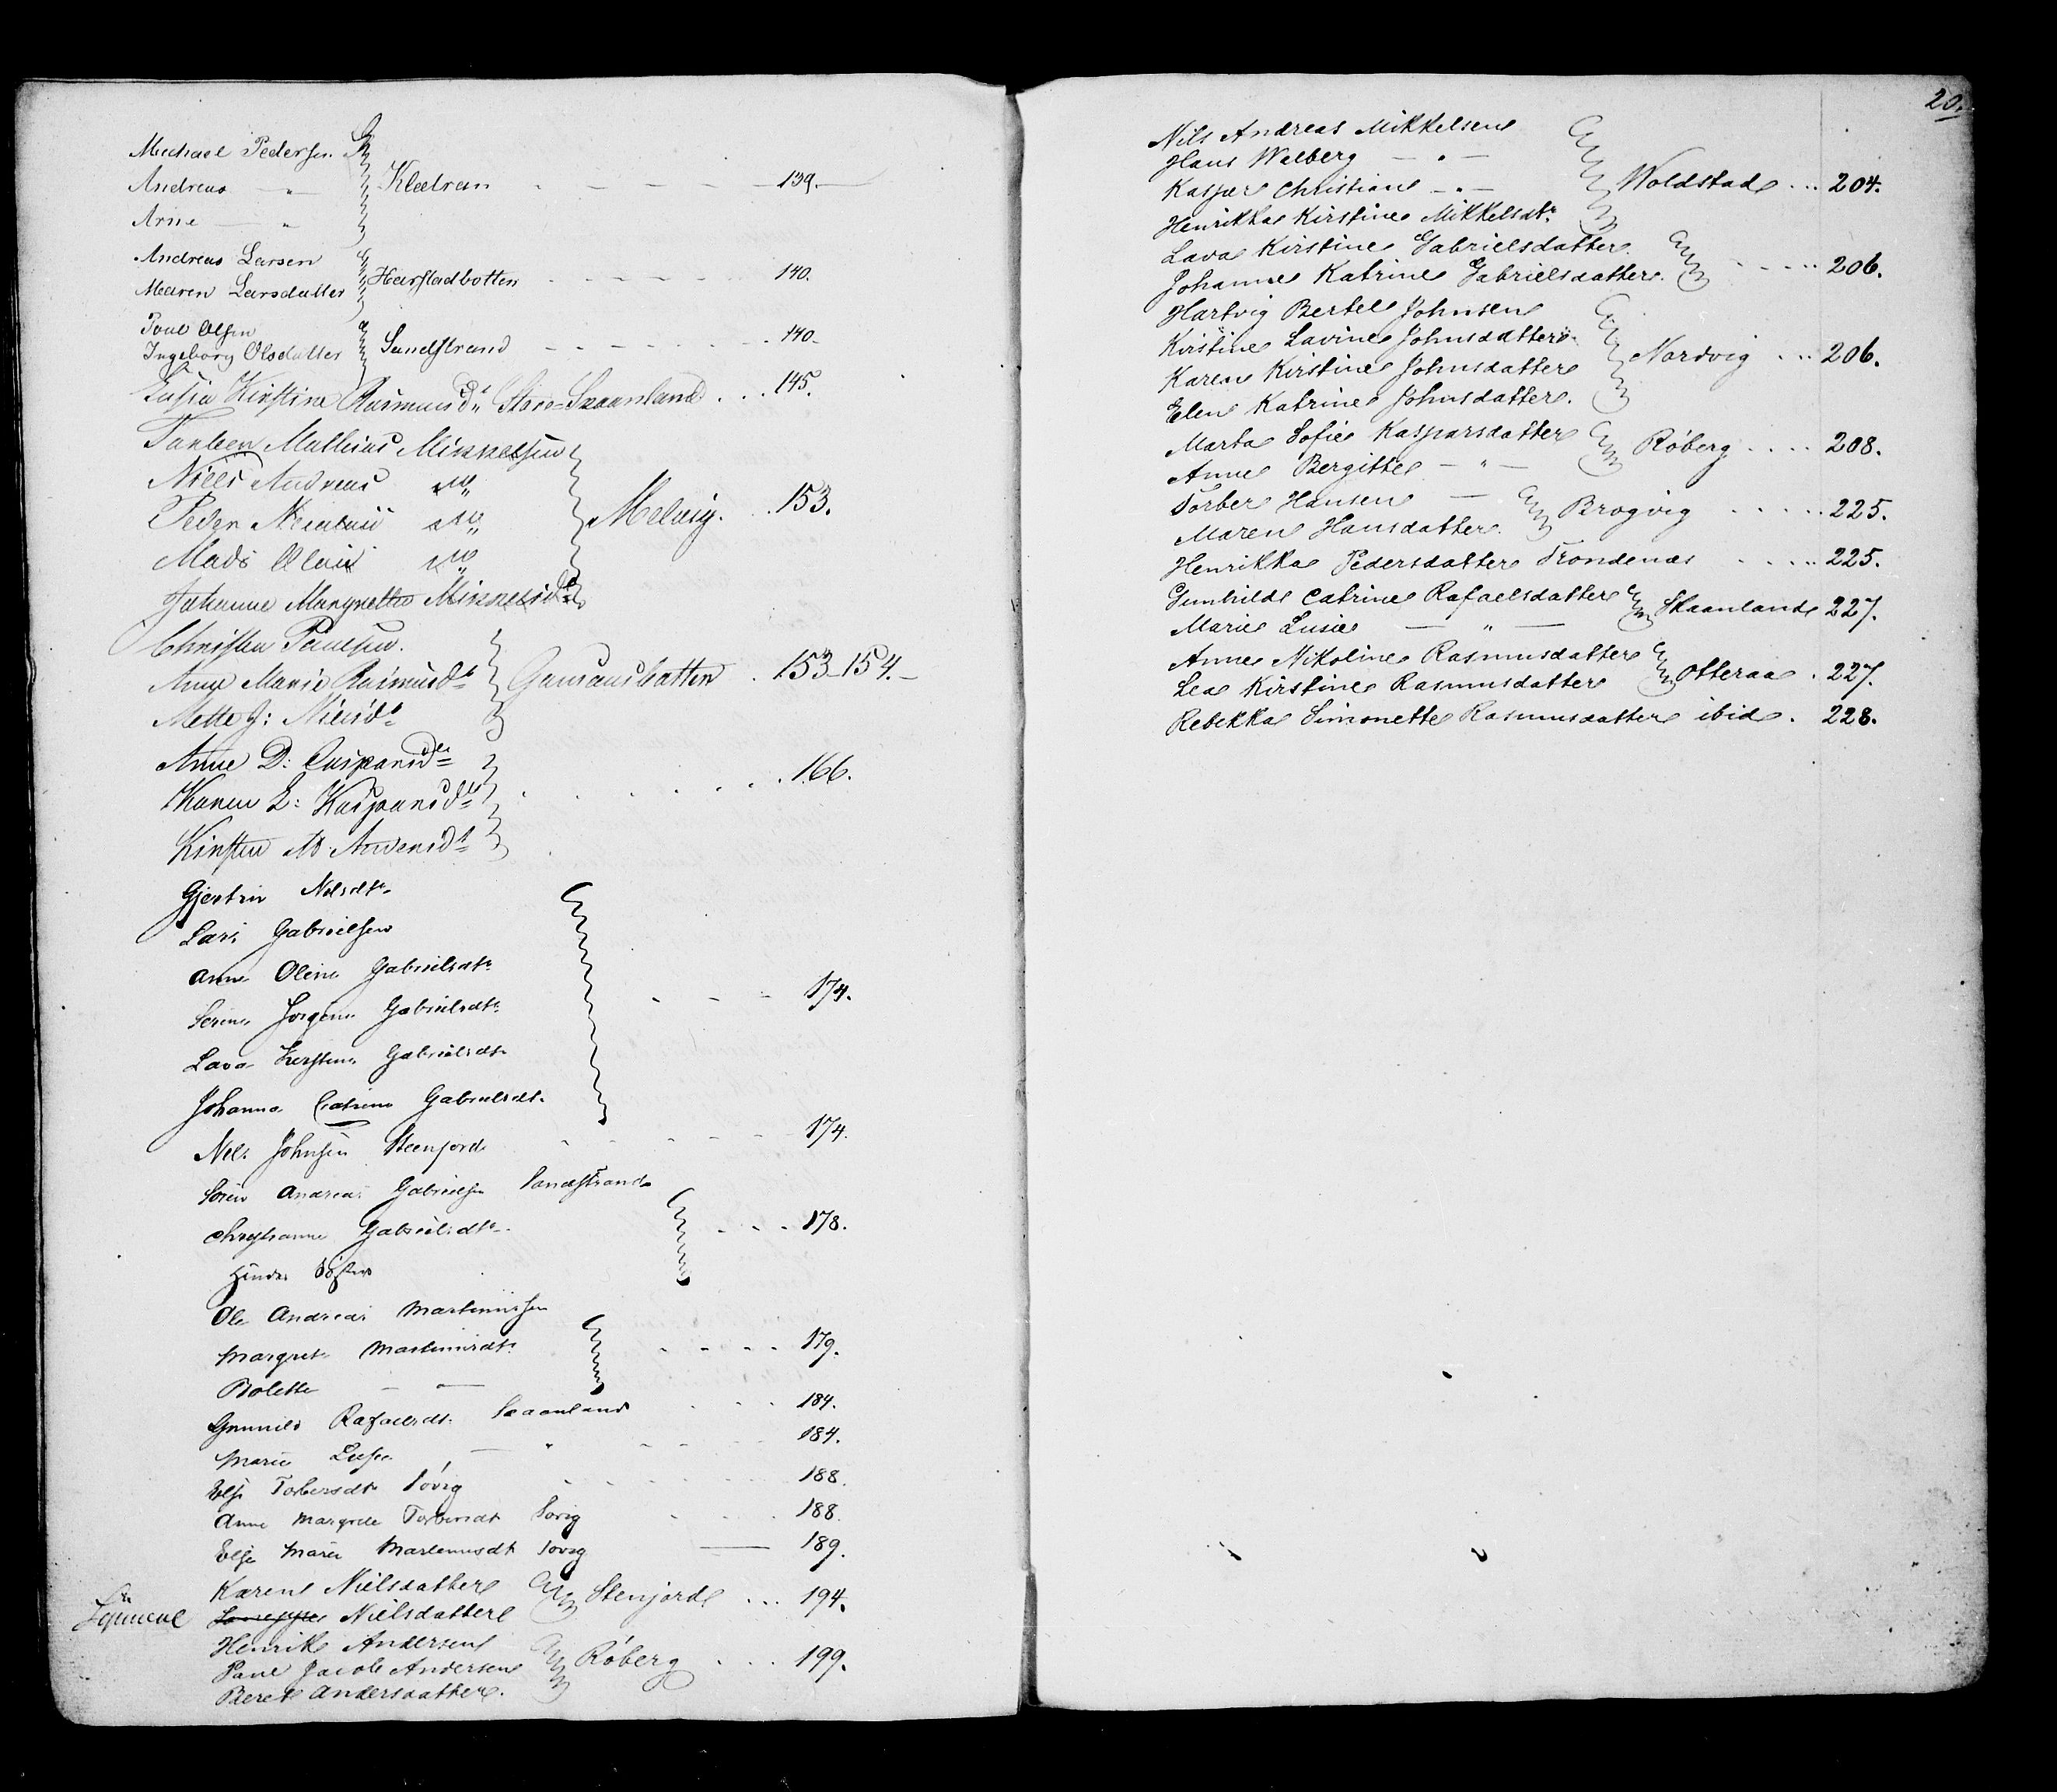 Michael Pedersen
Andreas — " — Kledran - - - - 139.
Arne — "
Andreas Larsen
Maren Larsdatter Harstadbotten - - - - 140.
Poul Olsen
Ingeborg Olsdatter Sandstrand - - - - 140.
Lusia Kirstina Rasmusdtr Store-Skaanland . . . 145.
Torben Mathias Mikkelsen
Niels Andreas "
Peder Nicolai " Melvig. . . 153.
Mads Olai "
Johanne Margrethe Mikkelsdtr
Christen Poulsen.
Anne Marie Rasmusdtr Gausausbotten . 153-154.
Mette J: Nielsdtr
Anne D: Caspersdtr
Karen L: Kasparsdtr . . . . . 166.
Kirsten M Andersdtr
Gjertin Nilsdtr
Lars Gabrielsen
Anne Oline Gabrielsdtr
Serine Jorgine Gabrielsdtr - - - 174.
Lava Kirstine Gabrielsdtr
Johanna Catrine Gabrielsdtr.
Nels Johnsen Steenjord - - - - 174.
Sören Andreas Gabrielsen Sandstrand
Chrystianne Gabrielsdtr. - - - 178.
Hendes Söster
Ole Andreas Martinussen
Margret Martinusdtr - - - - 179.
Bolette — " —
Gunnild Rafaelsdt. Skaanland . . . 184.
Marie Lusie — " - - - 184.
Else Torbersdtr Sövig - - - - 188.
Anne Margrete Torbersdt Sövig . . . 188.
Else Marie Martinusdt Sovig — 189.
Karen Nielsdatter Stenjord ... 194.
Nielsdatter
Henrik Andersen
Paul Jacob Andersen Röberg . . . 199.
Beret Andersdatter.
20.
Nils Andreas Mikkelsen
Hans Walberg — " —
Kasper Christian — " — Woldstad ... 204.
Henrikka Kirstine Mikkelsdtr
Lava Kirstine Gabrielsdatter
Johanne Katrine Gabrielsdatter. - - - 206.
Hartvig Bertel Johnsen
Kirstine Lavine Johnsdatter
Karen Kirstine Johnsdatter Nordvig ... 206.
Elen Katrine Johnsdatter.
Marta Sofie Kasparsdatter
Anne Bergitte — " — Röberg .... 208.
Torber Hansen —
Maren Hansdatter. Brogvig ..... 225.
Henrikka Pedersdatter Trondenæs .... 225.
Gunhild Catrine Rafaelsdatter
Marie Lusie — " — Skaanland 227.
Anne Nikoline Rasmusdatter
Lea Kirstine Rasmusdatter Otteraa . 227.
Rebekka Simonette Rasmusdatter ibid. 228.